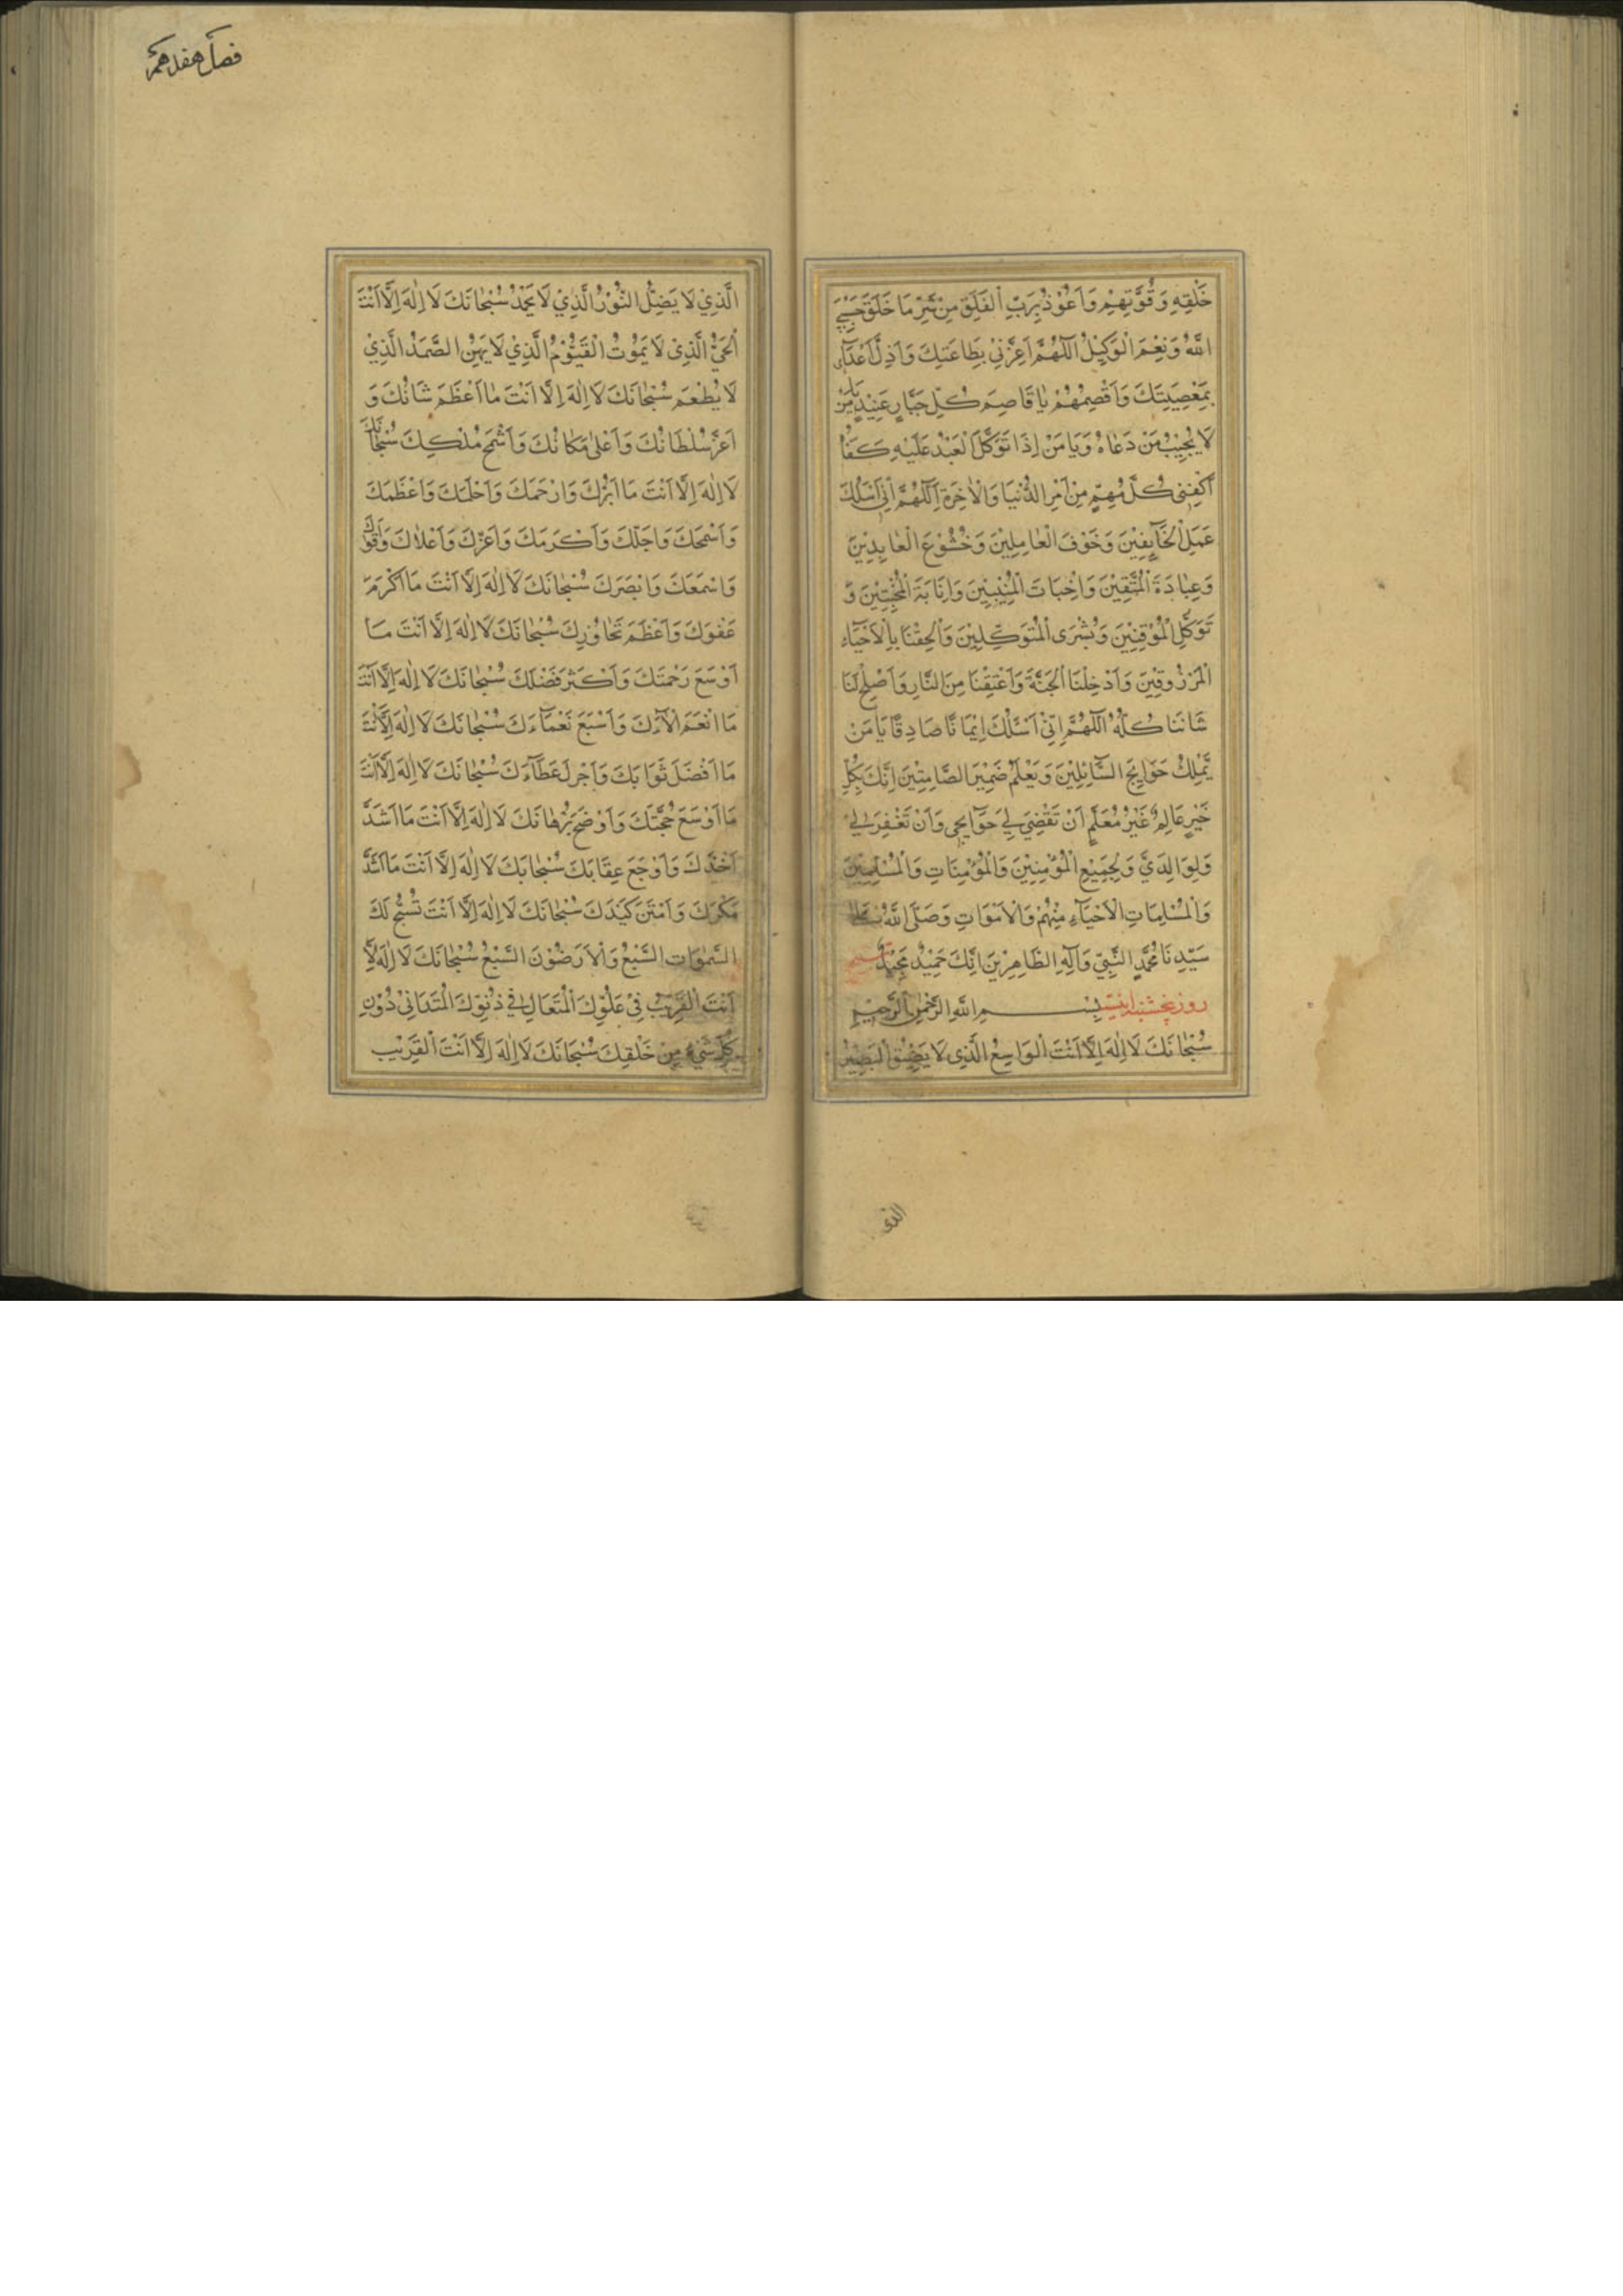 خَلْقِهِ وَقُوَّتِهِمْ وَاَعُوْذُ بِرَبِّ الْفَلَقِ مِنْ شَرِّ مَا خَلَقَ حَسْبِيَ
اللّٰهُ وَنِعْمَ الْوَكِيْلُ اَللّٰهُمَّ اَعِزَّنِيْ بِطَاعَتِكَ وَاَذِلَّ اَعْدَآئِي
بِمَعْصِيَتِكَ وَاَقْصِمْهُمْ يَا قَاصِمَ كُلِّ جَبَّارٍ عَنِيْدٍ يَا مَنْ
لَا يُجِيْبُ مَنْ دَعَاهُ وَيَا مَنْ اِذَا تَوَكَّلَ الْعَبْدُ عَلَيْهِ كَفَاهُ
اَكْفِنِيْ كُلَّ مُهِمٍّ مِنْ اَمْرِ الدُّنْيَا وَالْاٰخِرَةِ اَللّٰهُمَّ اِنِّيْ اَسْئَلُكَ
عَمَلَ الْخَآئِفِيْنَ وَخَوْفَ الْعَامِلِيْنَ وَخُشُوْعَ الْعَابِدِيْنَ
وَعِبَادَةَ الْمُتَّقِيْنَ وَاِخْبَاتَ الْمُنِيْبِيْنَ وَاِنَابَةَ الْمُخْبِتِيْنَ وَ
تَوَكُّلَ الْمُوْقِنِيْنَ وَبُشْرَى الْمُتَوَكِّلِيْنَ وَاَلْحِقْنَا بِالْاَحْيَآءِ
الْمَرْزُوْقِيْنَ وَاَدْخِلْنَا الْجَنَّةَ وَاَعْتِقْنَا مِنَ النَّارِ وَاَصْلِحْ لَنَا
شَانَنَا كُلَّهُ اَللّٰهُمَّ اِنِّيْ اَسْئَلُكَ اِيْمَانًا صَادِقًا يَا مَنْ
يَّمْلِكُ حَوَايِجَ السَّآئِلِيْنَ وَيَعْلَمُ ضَمِيْرَ الصَّامِتِيْنَ اِنَّكَ بِكُلِّ
خَيْرٍ عَالِمٌ غَيْرُ مُعَلَّمٍ اَنْ تَقْضِيَ لِيْ حَوَآئِجِيْ وَاَنْ تَغْفِرَ لِيْ
وَلِوَالِدَيَّ وَلِجَمِيْعِ الْمُؤْمِنِيْنَ وَالْمُؤْمِنَاتِ وَالْمُسْلِمِيْنَ
وَالْمُسْلِمَاتِ الْاَحْيَآءِ مِنْهُمْ وَالْاَمْوَاتِ وَصَلَّى اللّٰهُ عَلٰى
سَيِّدِنَا مُحَمَّدٍ النَّبِيِّ وَآلِهِ الطَّاهِرِيْنَ اِنَّكَ حَمِيْدٌ مَجِيْدٌ تسبيح
روز پنجشنبه اينست بِسْمِ اللّٰهِ الرَّحْمٰنِ الرَّحِيْمِ
سُبْحَانَكَ لَا اِلٰهَ اِلَّا اَنْتَ الْوَاسِعُ الَّذِيْ لَا يَضِيْقُ الْبَصِيْرُ
الذى
فصل هفدهم
الَّذِيْ لَا يَضِلُّ النُّوْرُ الَّذِيْ لَا يَخْمَدُ سُبْحَانَكَ لَا اِلٰهَ اِلَّا اَنْتَ
الْحَيُّ الَّذِيْ لَا يَمُوْتُ الْقَيُّوْمُ الَّذِيْ لَا يَهِنُ الصَّمَدُ الَّذِيْ
لَا يُطْعَمُ سُبْحَانَكَ لَا اِلٰهَ اِلَّا اَنْتَ مَا اَعْظَمَ شَانُكَ وَ
اَعَزَّ سُلْطَانُكَ وَاَعْلٰى مَكَانُكَ وَاَشْمَخَ مُلْكِكَ سُبْحَانَكَ
لَا اِلٰهَ اِلَّا اَنْتَ مَا اَبَرَّكَ وَاَرْحَمَكَ وَاَحْلَمَكَ وَاَعْظَمَكَ
وَاَسْمَحَكَ وَاَجَلَّكَ وَاَكْرَمَكَ وَاَعَزَّكَ وَاَعْلَاكَ وَاَقْوَاكَ
وَاَسْمَعَكَ وَاَبْصَرَكَ سُبْحَانَكَ لَا اِلٰهَ اِلَّا اَنْتَ مَا اَكْرَمَ
عَفْوَكَ وَاَعْظَمَ تَجَاوُزِكَ سُبْحَانَكَ لَا اِلٰهَ اِلَّا اَنْتَ مَا
اَوْسَعَ رَحْمَتَكَ وَاَكْثَرَ فَضْلَكَ سُبْحَانَكَ لَا اِلٰهَ اِلَّا اَنْتَ
مَا اَنْعَمَ اٰلَآءَكَ وَاَسْبَغَ نَعْمَآءَكَ سُبْحَانَكَ لَا اِلٰهَ اِلَّا اَنْتَ
مَا اَفْضَلَ ثَوَابَكَ وَاَجْزَلَ عَطَآءَكَ سُبْحَانَكَ لَا اِلٰهَ اِلَّا اَنْتَ
مَا اَوْسَعَ حُجَّتَكَ وَاَوْضَحَ بُرْهَانَكَ لَا اِلٰهَ اِلَّا اَنْتَ مَا اَشَدَّ
اَخْذَكَ وَاَوْجَعَ عِقَابَكَ سُبْحَانَكَ لَا اِلٰهَ اِلَّا اَنْتَ مَا اَشَدَّ
مَكْرَكَ وَاَمْتَنَ كَيْدَكَ سُبْحَانَكَ لَا اِلٰهَ اِلَّا اَنْتَ تُسَبِّحُ لَكَ
السَّمٰوَاتِ السَّبْعُ وَالْاَرَضُوْنَ السَّبْعُ سُبْحَانَكَ لَا اِلٰهَ اِلَّا
اَنْتَ الْقَرِيْبُ فِيْ عُلُوِّكَ الْمُتَعَالِ فِيْ دُنُوِّكَ الْمُتَدَانِيْ دُوْنَ
كُلِّ شَيْءٍ مِنْ خَلْقِكَ سُبْحَانَكَ لَا اِلٰهَ اِلَّا اَنْتَ الْقَرِيْب